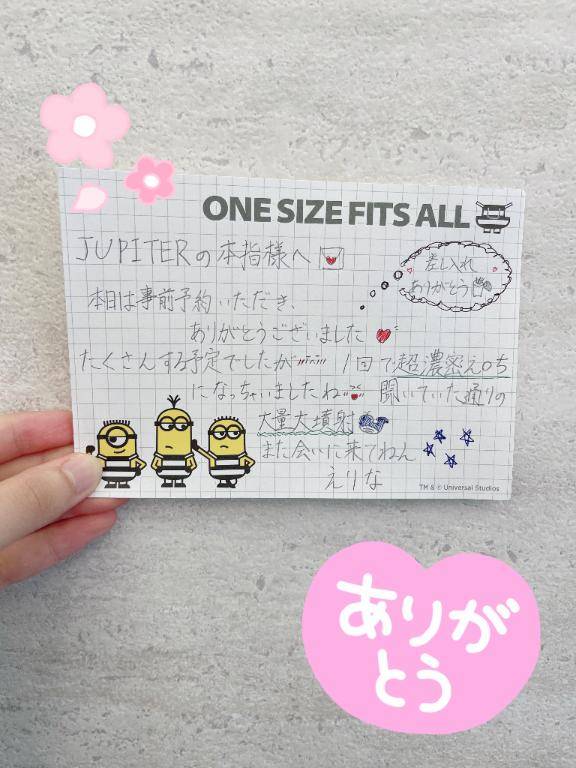 ONE SIZE FITS ALL
JUPITERの本指様へ
差し入れ
ありがとう
本日は事前予約いただき、
ありがとうございました
たくさんする予定でしたが 1回で超濃密え○ち
になっちゃいましたね 聞いていた通りの
大量大墳射
また会いに来てねん
えりな
TM & © Universal Studios
ありが
とう